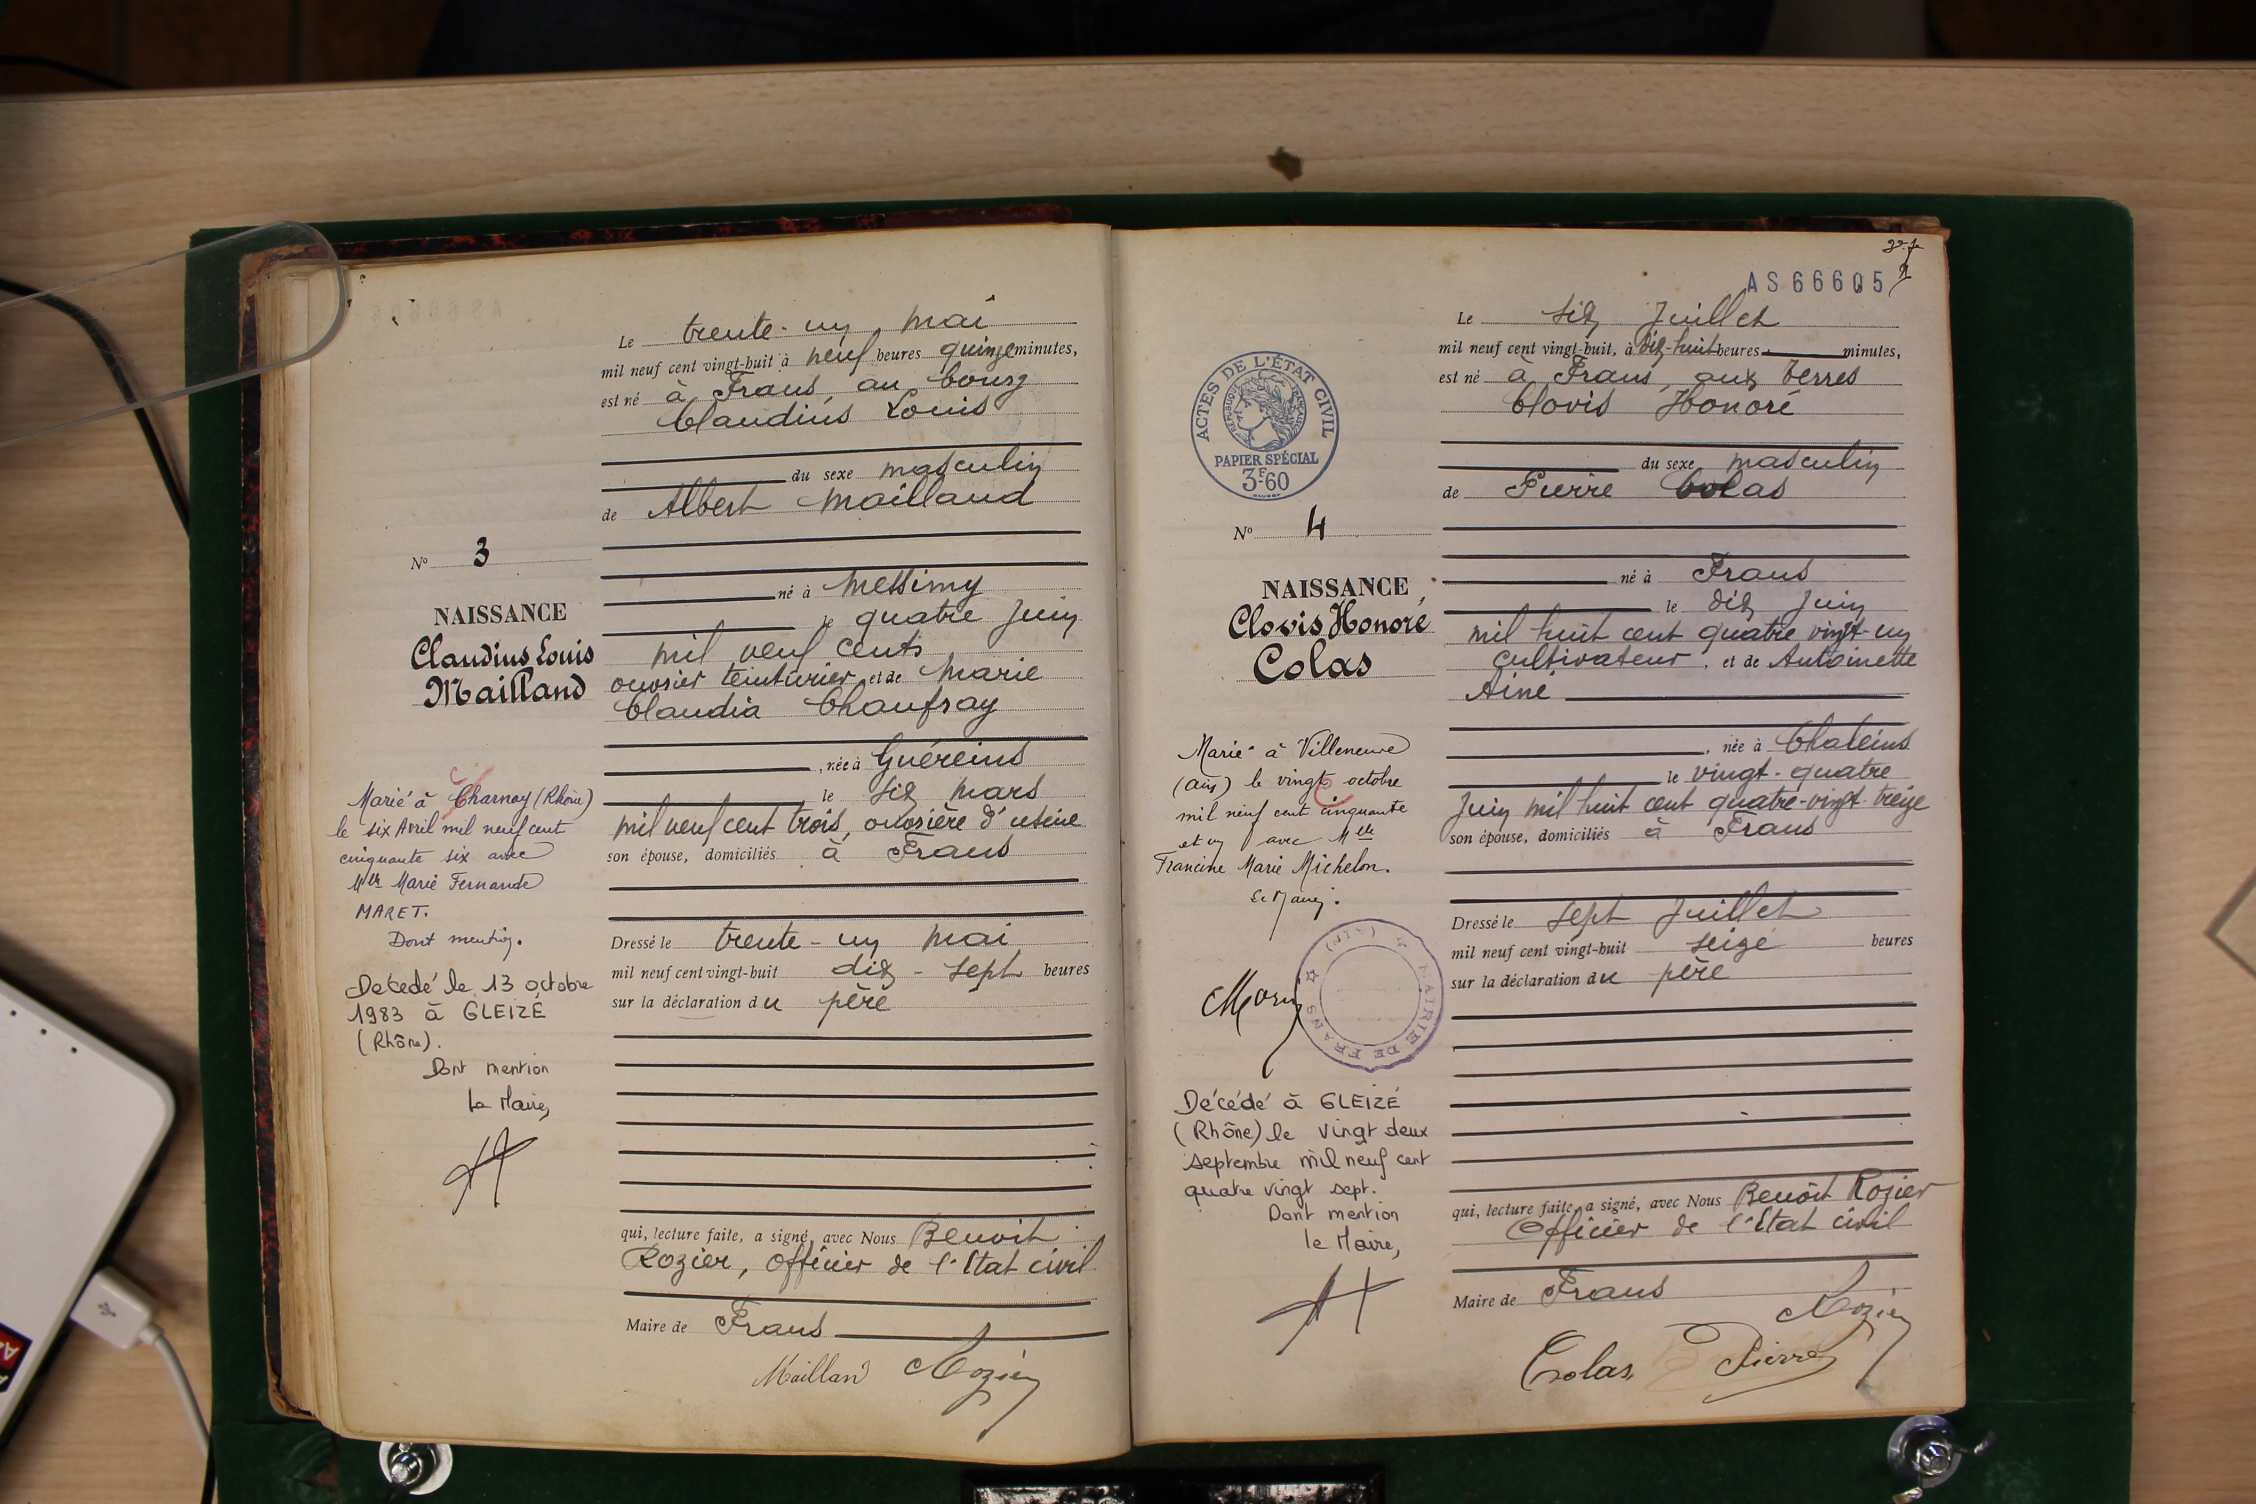 N° 3
NAISSANCE
Claudius Louis
Mailland
Marié à Charnay (Rhône)
le six Avril mil neuf cent
cinquante six avec
Mlle Marie Fernande
MARET.
Dont mention.
Décédé le 13 octobre
1983 à GLEIZÉ
(Rhône).
Dont mention
Le Maire,
Le trente-un mai
mil neuf cent vingt-huit à neuf heures quinze minutes,
est né à Frans au bourg
Claudius Louis
du sexe masculin
de Albert Mailland
né à Messimy
le quatre Juin
mil neuf cents
ouvrier teinturier et de Marie
Claudia Chaufray
, née à Guéreins
le six mars
mil neuf cent trois, ouvrière d'usine
son épouse, domiciliés à Frans
Dressé le trente-un mai
mil neuf cent vingt-huit dix-sept heures
sur la déclaration du père
qui, lecture faite, a signé, avec Nous Benoît
Rozier, Officier de l'Etat civil
Maire de Frans
Mailland Rozier
AS66605
ACTES DE L'ÉTAT CIVIL
RÉPUBLIQUE FRANÇAISE
PAPIER SPÉCIAL
3F60
N° 4
NAISSANCE
Clovis Honoré
Colas
Marié à Villeneuve
(Ain) le vingt octobre
mil neuf cent cinquante
et un avec Mlle
Francine Marie Michelon.
Le Maire.
MAIRIE DE FRANS (AIN)
Décédé à GLEIZÉ
(Rhône) le vingt deux
septembre mil neuf cent
quatre vingt sept.
Dont mention
le Maire,
Le six Juillet
mil neuf cent vingt-huit, à dix-huit heures minutes,
est né à Frans, aux Terres
Clovis Honoré
du sexe masculin
de Pierre Colas
né à Frans
le dix Juin
mil huit cent quatre vingt-un
cultivateur, et de Antoinette
Ainé
, née à Chaleins
le vingt-quatre
Juin mil huit cent quatre-vingt-treize
son épouse, domiciliés à Frans
Dressé le sept Juillet
mil neuf cent vingt-huit seize heures
sur la déclaration du père
qui, lecture faite, a signé, avec Nous Benoît Rozier
Officier de l'Etat civil
Maire de Frans
Rozier
Colas Pierre